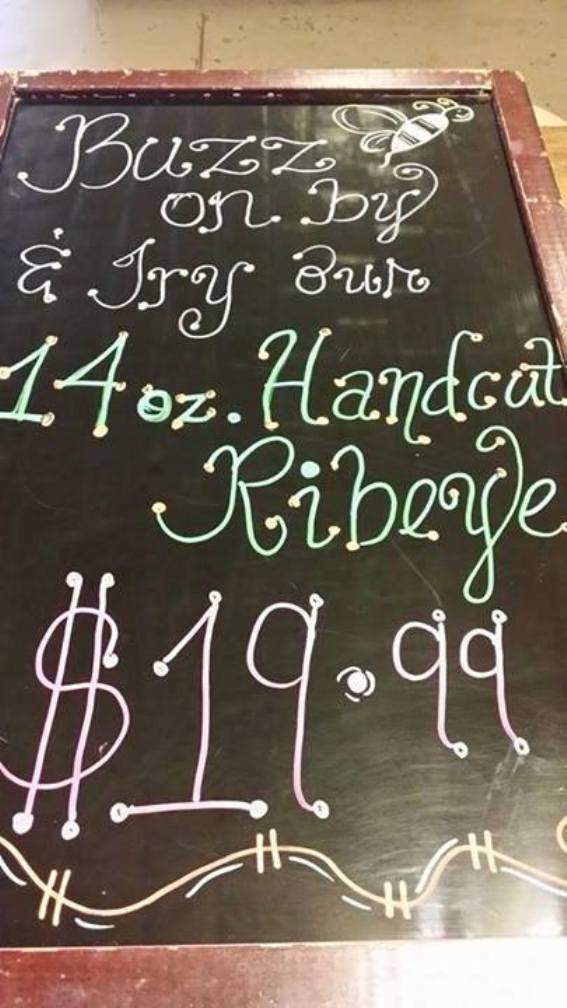 Buzz
on by
& Try our
14 oz. Handcut
Ribeye
$19.99